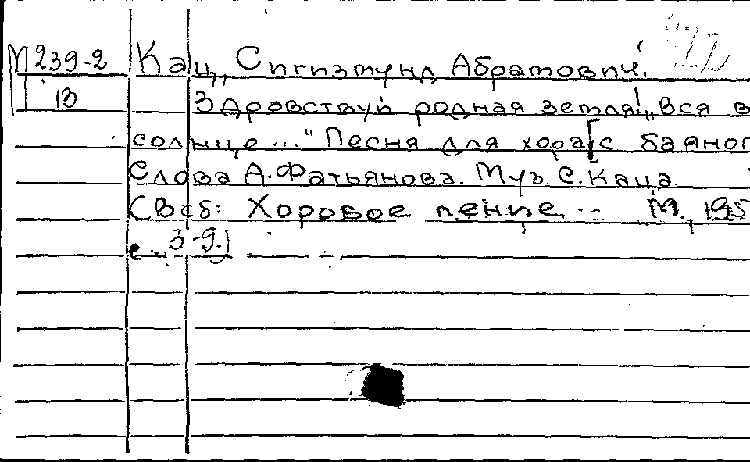 М239-2 Кац, Сигизмунд Абрамович.
13 Здравствуй родная земля! „Вся в
солнце..." Песня для хора [с баяном
Слова А. Фатьянова. Муз С. Каца
[В сб: Хоровое пение... М., 195
с. 3-9.]